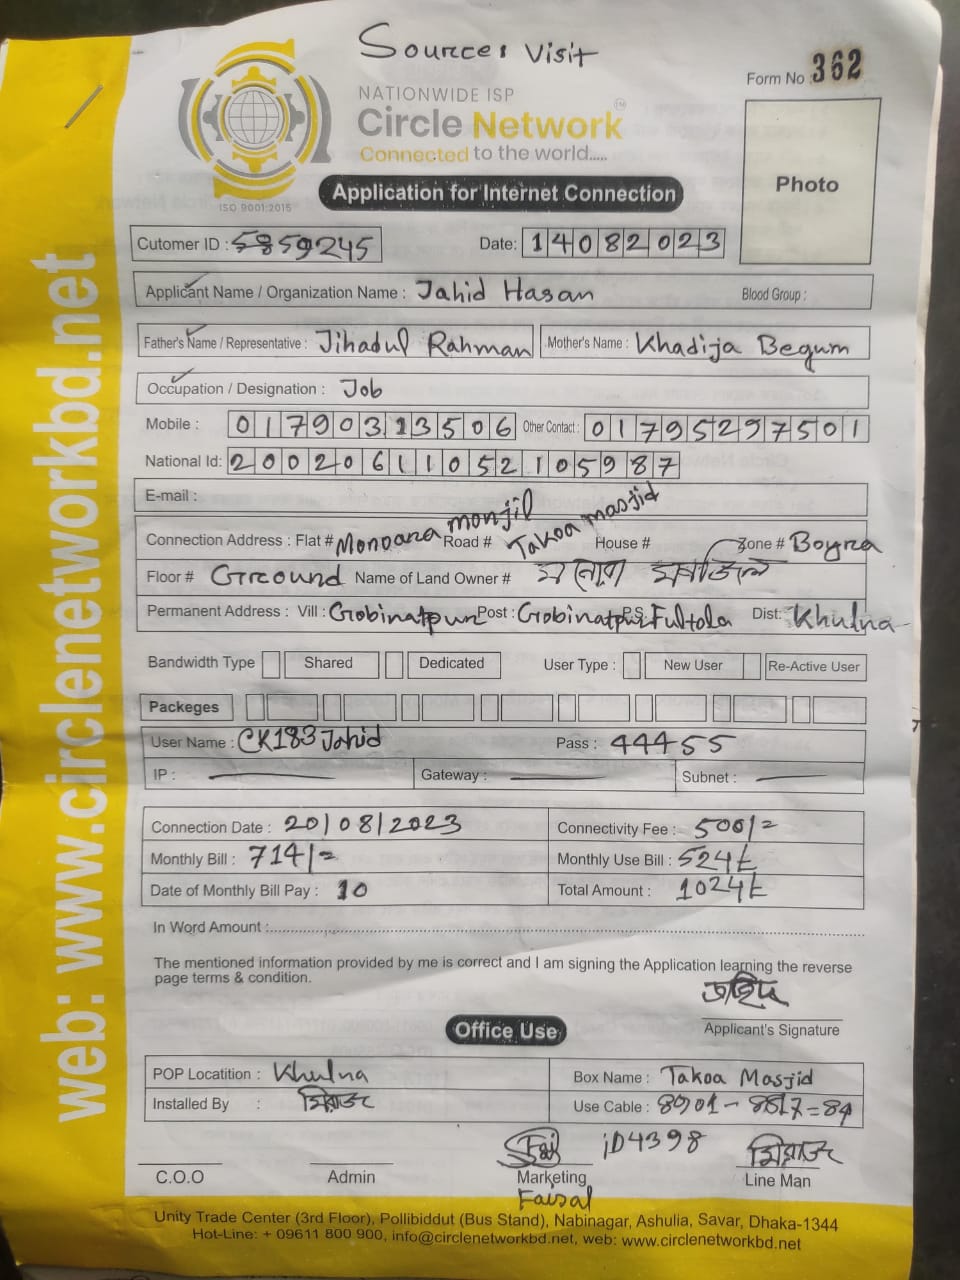 Source: Visit
Form No : 362
NATIONWIDE ISP
Circle Network
Connected to the world.....
ISO 9001:2015
Application for Internet Connection
Photo
Cutomer ID : 5859245 Date: 14082023
Applicant Name / Organization Name : Jahid Hasan Blood Group :
Father's Name / Representative : Jihadul Rahman Mother's Name : Khadija Begum
Occupation / Designation : Job
Mobile : 01790313506 Other Contact : 01795297501
National Id: 20020611052105987
E-mail :
Connection Address : Flat # Monoara monjil Road # Takoa masjid House # Zone # Boyra
Floor # Ground Name of Land Owner #
Permanent Address : Vill : Gobinatpur Post : Gobinatpur P.S. Fultola Dist: Khulna
Bandwidth Type Shared Dedicated User Type : New User Re-Active User
Packeges
User Name : CK183Jahid Pass : 444455
IP : Gateway : Subnet :
Connection Date : 20/08/2023 Connectivity Fee : 500/=
Monthly Bill : 714/= Monthly Use Bill : 524৳
Date of Monthly Bill Pay : 10 Total Amount : 1024৳
In Word Amount :
The mentioned information provided by me is correct and I am signing the Application learning the reverse
page terms & condition.
জাহিদ
Applicant's Signature
Office Use
POP Locatition : Khulna Box Name : Takoa Masjid
Installed By : মিরাজ Use Cable : 8901-8817=84
ID4398 মিরাজ
C.O.O Admin Marketing Line Man
Faisal
Unity Trade Center (3rd Floor), Pollibiddut (Bus Stand), Nabinagar, Ashulia, Savar, Dhaka-1344
Hot-Line: + 09611 800 900, info@circlenetworkbd.net, web: www.circlenetworkbd.net
web: www.circlenetworkbd.net